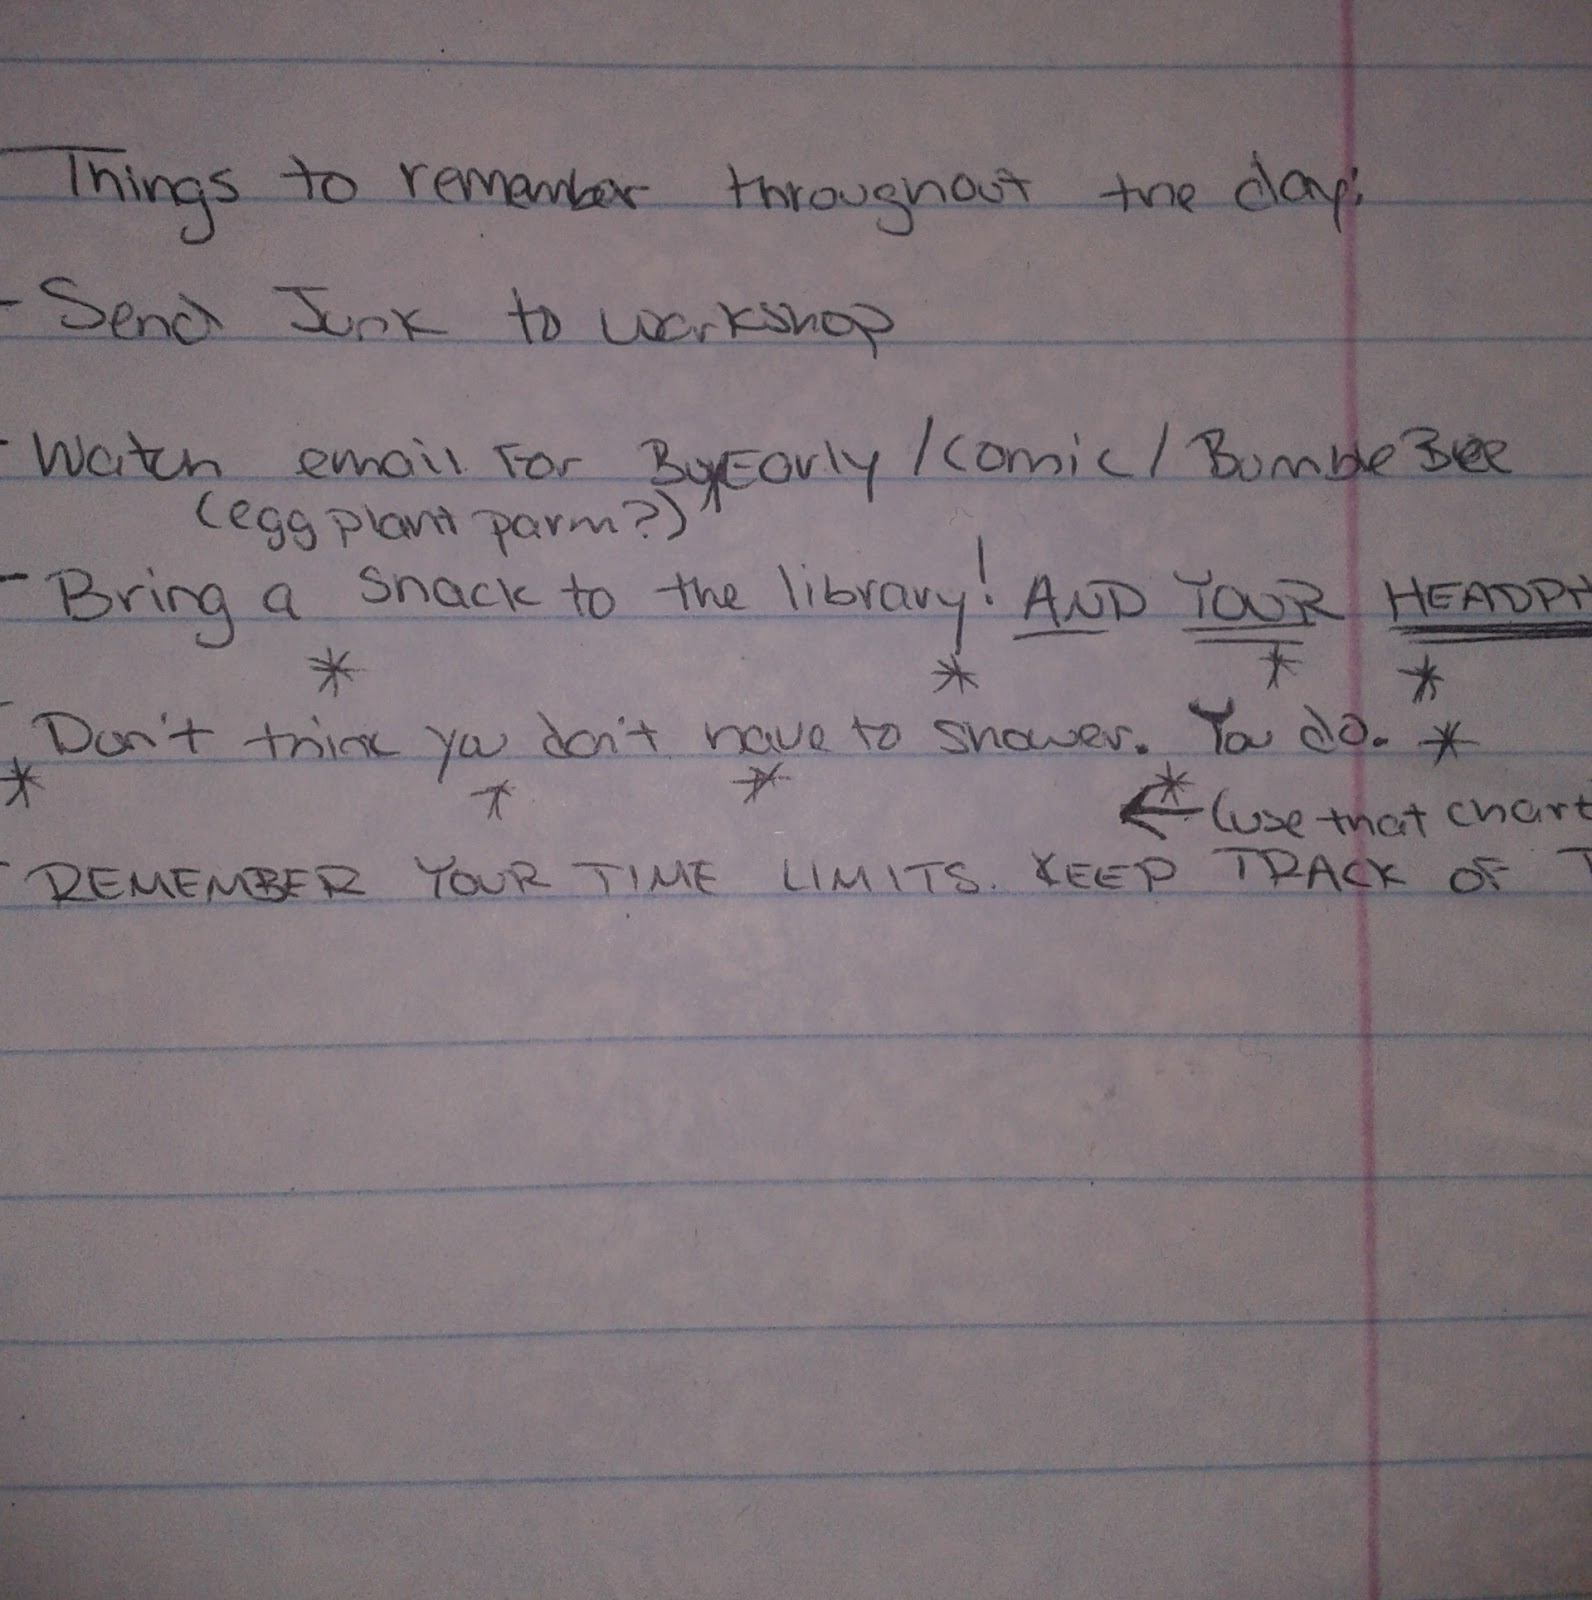 Things to remember throughout the day:
- Send Junk to workshop
- Watch email for ByEarly / Comic / BumbleBee
(eggplant parm?)
- Bring a snack to the library! AND YOUR HEADPH
* * * *
- Don't think you don't have to shower. You do. *
* * * *
← (use that chart
- REMEMBER YOUR TIME LIMITS. KEEP TRACK OF T